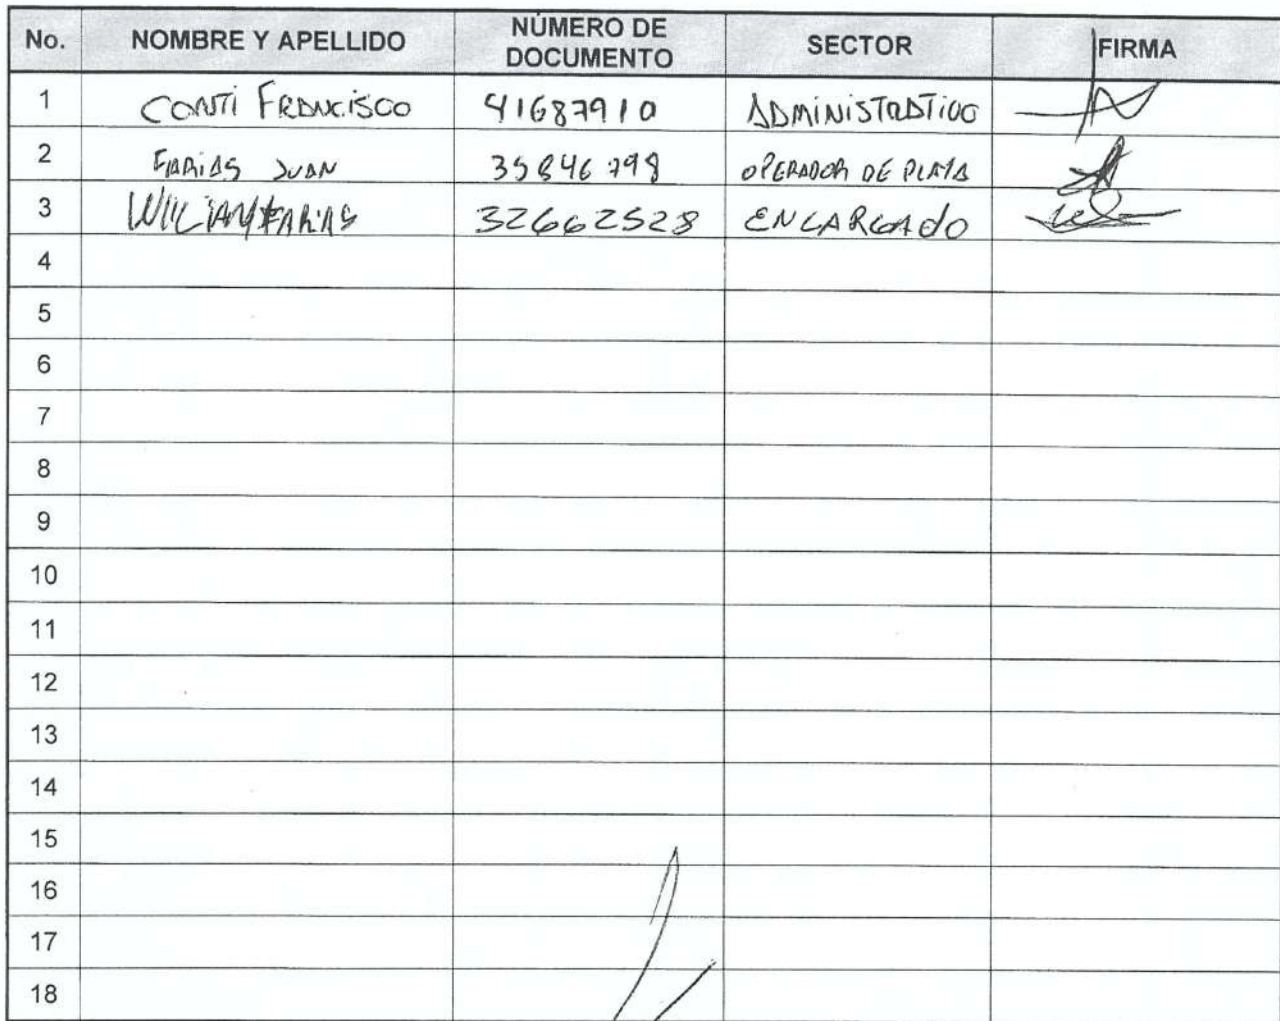 No. NOMBRE Y APELLIDO NÚMERO DE DOCUMENTO SECTOR FIRMA
1 CONTI FRANCISCO 41687910 ADMINISTRATIVO
2 FARIAS JUAN 35846798 OPERADOR DE PLAYA
3 WILIAM FARIAS 32662528 ENCARGADO
4
5
6
7
8
9
10
11
12
13
14
15
16
17
18